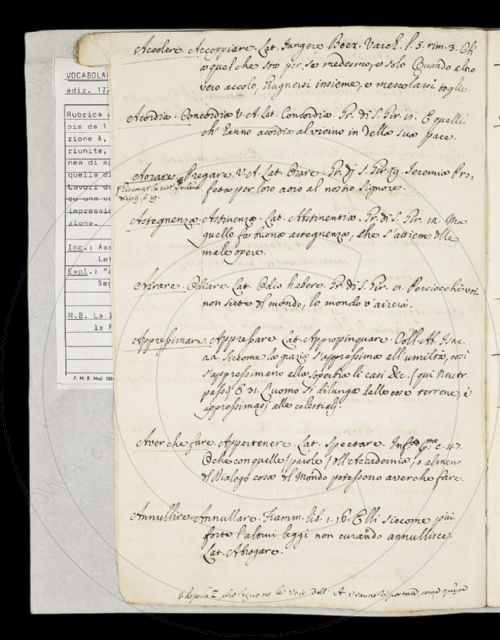 VOCABOLA
ediz. 172
Rubrica
pis da 1
zione A,
ziunite,
nea di sp
quella di
Lavori du
ou una vo
impressio
zione.
Inc.: Acc
Let
Expl.: "A
Seg
N.B. La l
la F
Accolere. Accoppiare. Lat. Iungere. Boez. Varch. l. 5. rim. 3. Ch
a quel che sta per se medesimo, e solo Quando altro
vero accolo, Giugnersi insieme, e mescolarsi toglie.
Acordia. Concordia V. A. Lat. Concordia. Gr. di S. Gir. 11. E quelli
ch'hanno acordia al vicino in della sua pace.
Aorare. Pregare. V. A. Lat. Orare. Gr. di S. Gir. 59. Ieremia Pro-
feta per loro aorò al nostro Signore.
Astegnenza. Astinenza. Lat. Abstinentia. Gr. di S. Gir. 12. Ma
quello fa buona astegnenza, che s'attiene dlle
male opere.
Airare. Odiare. Lat. Odio habere. Gr. di S. Gir. 11. Perciocchè voi
non siete dl mondo, lo mondo v'airerà.
Appressimare. Appressare. Lat. Appropinquare. Coll. Ab. Isac.
Siccome la grazia s'appressima all'umiltà, così
s'appressimano alla superbia li casi &c. (qui Neutr.
pass.) E 31. L'uomo si dilunga dalle cose terrene, e
appressimasi alle celestiali.
Aver che fare. Appartenere. Lat. Spectare. 47.
O che con quelle parole dll'Accademia, o alcuno
dl Dialogo cosa dl Mondo potessono aver che fare.
Annullire. Annullare. Fiamm. lib. 1. 16. Elli siccome più
forte l'altrui leggi non curando annullisce.
Lat. Abrogare.